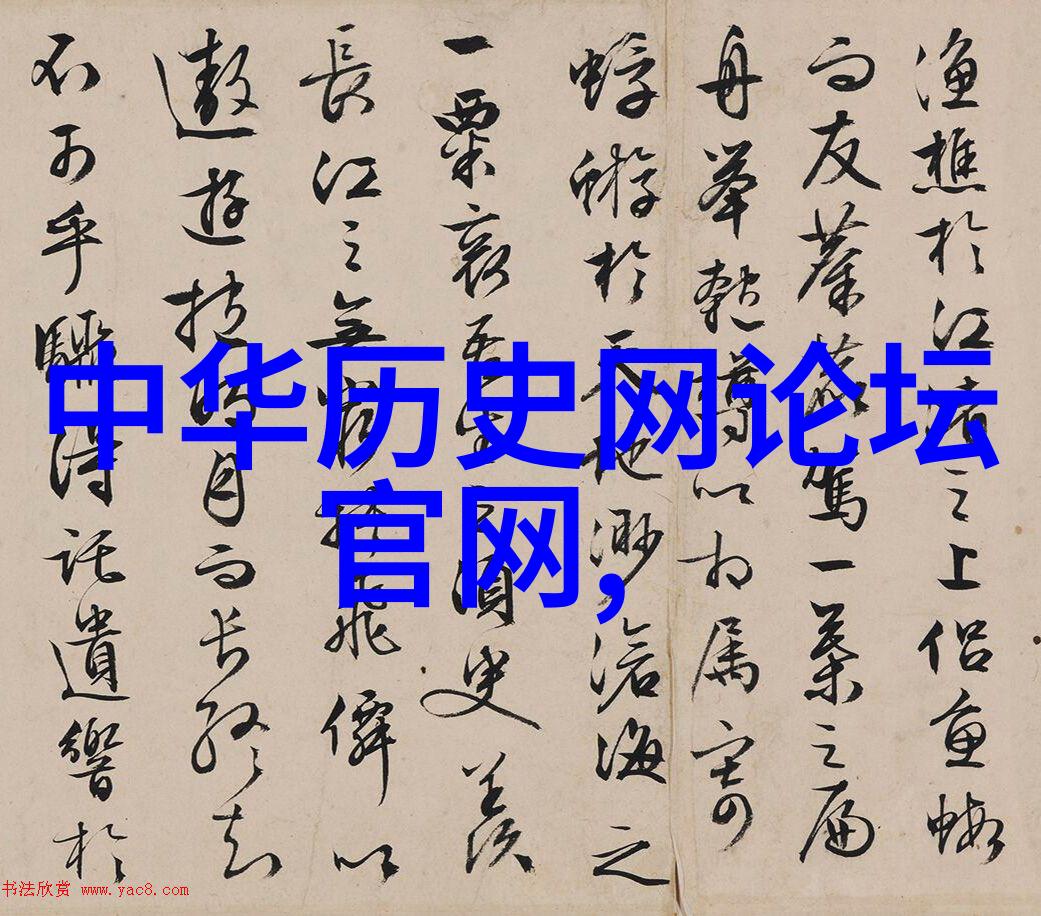 漁樵於江渚之上侣魚蝦
而友麋鹿駕一葉之扁
舟举匏樽以相属寄
蜉蝣於天地渺滄海之
一粟哀吾生之須臾羡
長江之無窮挾飛僊以
遨遊抱明月而長終知
不可乎驟得託遺響於
中华历史网论坛
官网,
书法欣赏 www.yac8.com